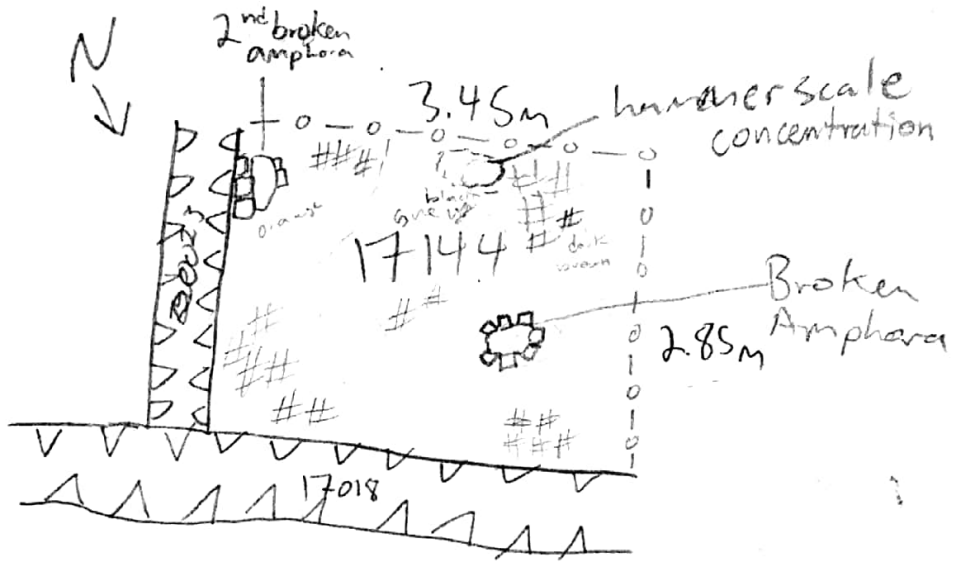 N
2nd broken
amphora
3.45m
hammerscale
concentration
17144
dark
brown
Broken
Amphora
2.85m
17018